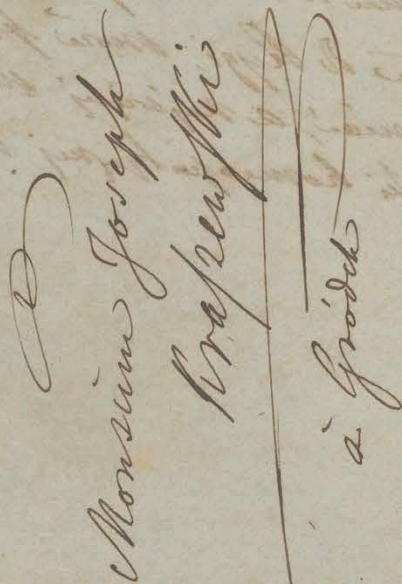 à
Monsieur Joseph
Kraszewski
à Gródek